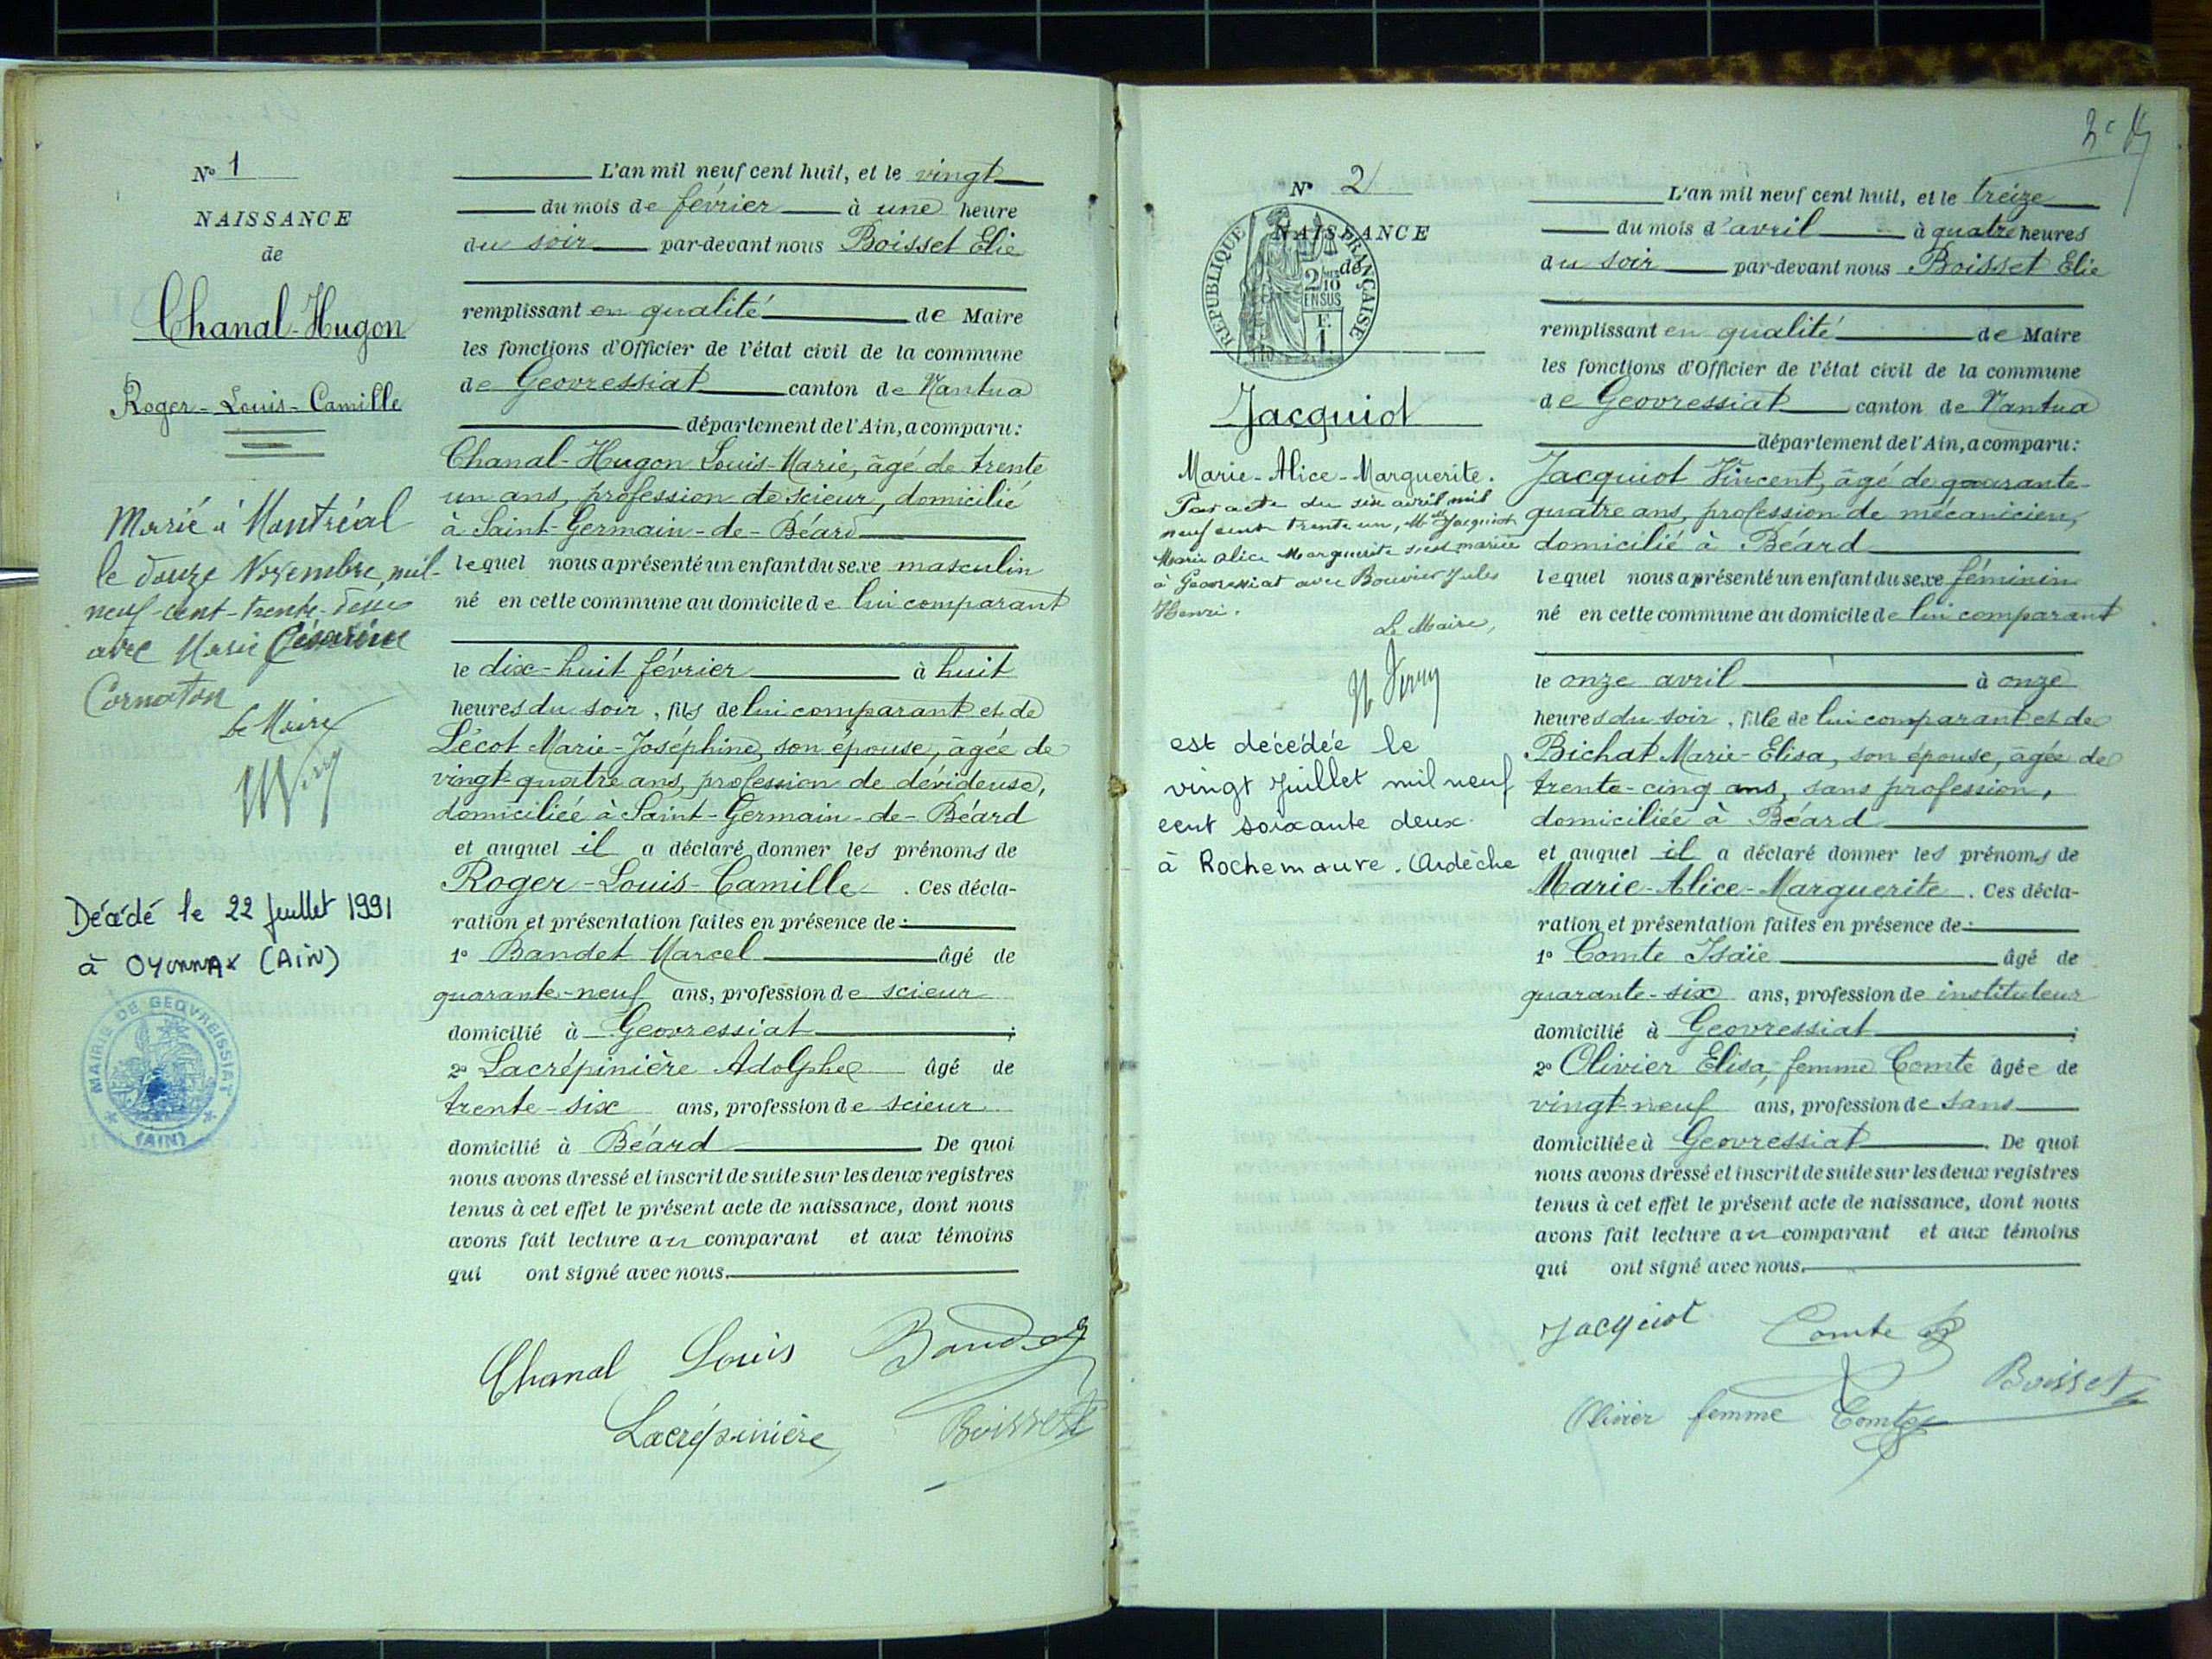 N° 1
NAISSANCE
de
Chanal-Hugon
Roger-Louis-Camille
Marié à Montréal
le douze Novembre mil-
neuf-cent-trente-
avec Marie Césarine
Cornaton
Le Maire
Décédé le 22 Juillet 1991
à OYONNAX (AIN)
MAIRIE DE GEOVREISSIAT
(AIN)
L'an mil neuf cent huit, et le vingt
du mois de février à une heure
du soir par-devant nous Boisset Elie
remplissant en qualité de Maire
les fonctions d'Officier de l'état civil de la commune
de Geovressiat canton de Nantua
département de l'Ain, a comparu:
Chanal-Hugon Louis-Marie, âgé de trente
un ans, profession de scieur, domicilié
à Saint-Germain-de-Béard
lequel nous a présenté un enfant du sexe masculin
né en cette commune au domicile de lui comparant
le dix-huit février à huit
heures du soir, fils de lui comparant et de
Lécot Marie-Joséphine, son épouse, âgée de
vingt-quatre ans, profession de dévideuse,
domiciliée à Saint-Germain-de-Béard
et auquel il a déclaré donner les prénoms de
Roger-Louis-Camille. Ces décla-
ration et présentation faites en présence de:
1° Bandet Marcel âgé de
quarante-neuf ans, profession de scieur
domicilié à Geovressiat;
2° Lacrépinière Adolphe âgé de
trente-six ans, profession de scieur
domicilié à Béard De quoi
nous avons dressé et inscrit de suite sur les deux registres
tenus à cet effet le présent acte de naissance, dont nous
avons fait lecture au comparant et aux témoins
qui ont signé avec nous.
Chanal Louis Bandet
Lacrépinière Boisset
N° 2
NAISSANCE
de
REPUBLIQUE FRANÇAISE
2/10
EN SUS
Jacquiot
Marie-Alice-Marguerite.
Par acte du six avril mil
neuf cent trente un, Melle Jacquiot
Marie Alice Marguerite s'est mariée
à Geovressiat avec Bouvier Jules
Henri.
Le Maire,
est décédée le
vingt Juillet mil neuf
cent soixante deux
à Rochemaure. (Ardèche
L'an mil neuf cent huit, et le treize
du mois d'avril à quatre heures
du soir par-devant nous Boisset Elie
remplissant en qualité de Maire
les fonctions d'Officier de l'état civil de la commune
de Geovressiat canton de Nantua
département de l'Ain, a comparu:
Jacquiot Vincent, âgé de quarante-
quatre ans, profession de mécanicien,
domicilié à Béard
lequel nous a présenté un enfant du sexe féminin
né en cette commune au domicile de lui comparant
le onze avril à onze
heures du soir, fille de lui comparant et de
Bichat Marie-Elisa, son épouse, âgée de
trente-cinq ans, sans profession,
domiciliée à Béard
et auquel il a déclaré donner les prénoms de
Marie-Alice-Marguerite. Ces décla-
ration et présentation faites en présence de:
1° Comte Isaïe âgé de
quarante-six ans, profession de instituteur
domicilié à Geovressiat;
2° Olivier Elisa, femme Comte âgée de
vingt-neuf ans, profession de sans
domiciliée à Geovressiat. De quoi
nous avons dressé et inscrit de suite sur les deux registres
tenus à cet effet le présent acte de naissance, dont nous
avons fait lecture au comparant et aux témoins
qui ont signé avec nous.
Jacquiot Comte
Boisset
Olivier femme Comte